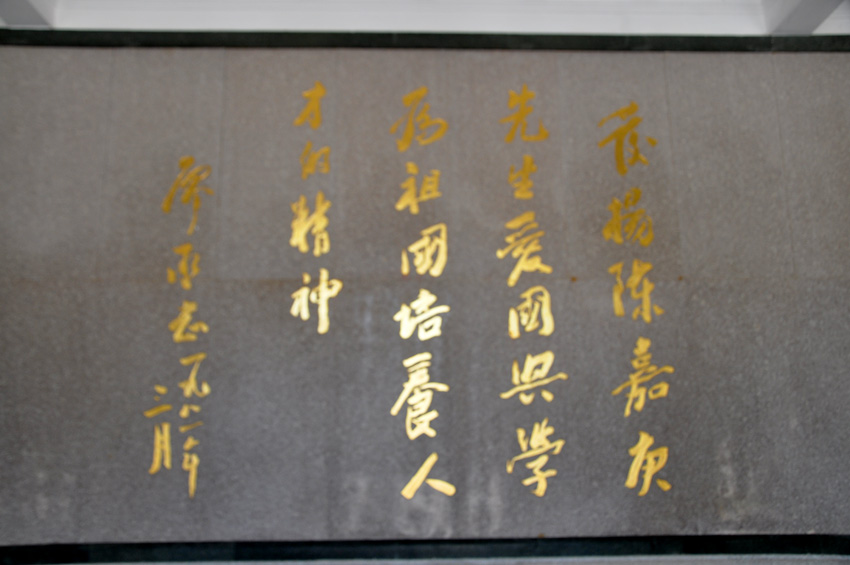 發揚陳嘉庚
先生愛國興學
為祖國培養人
才的精神
廖承志一九八一年
二月